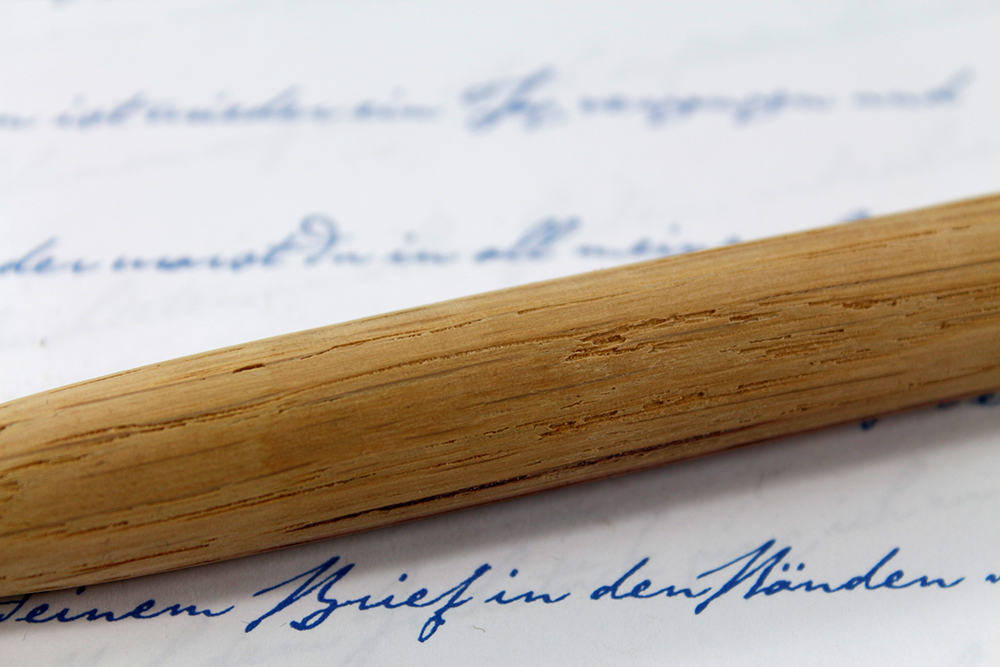 ist wieder ein Tag vergangen und
der warst Du in all meine
einem Brief in den Händen